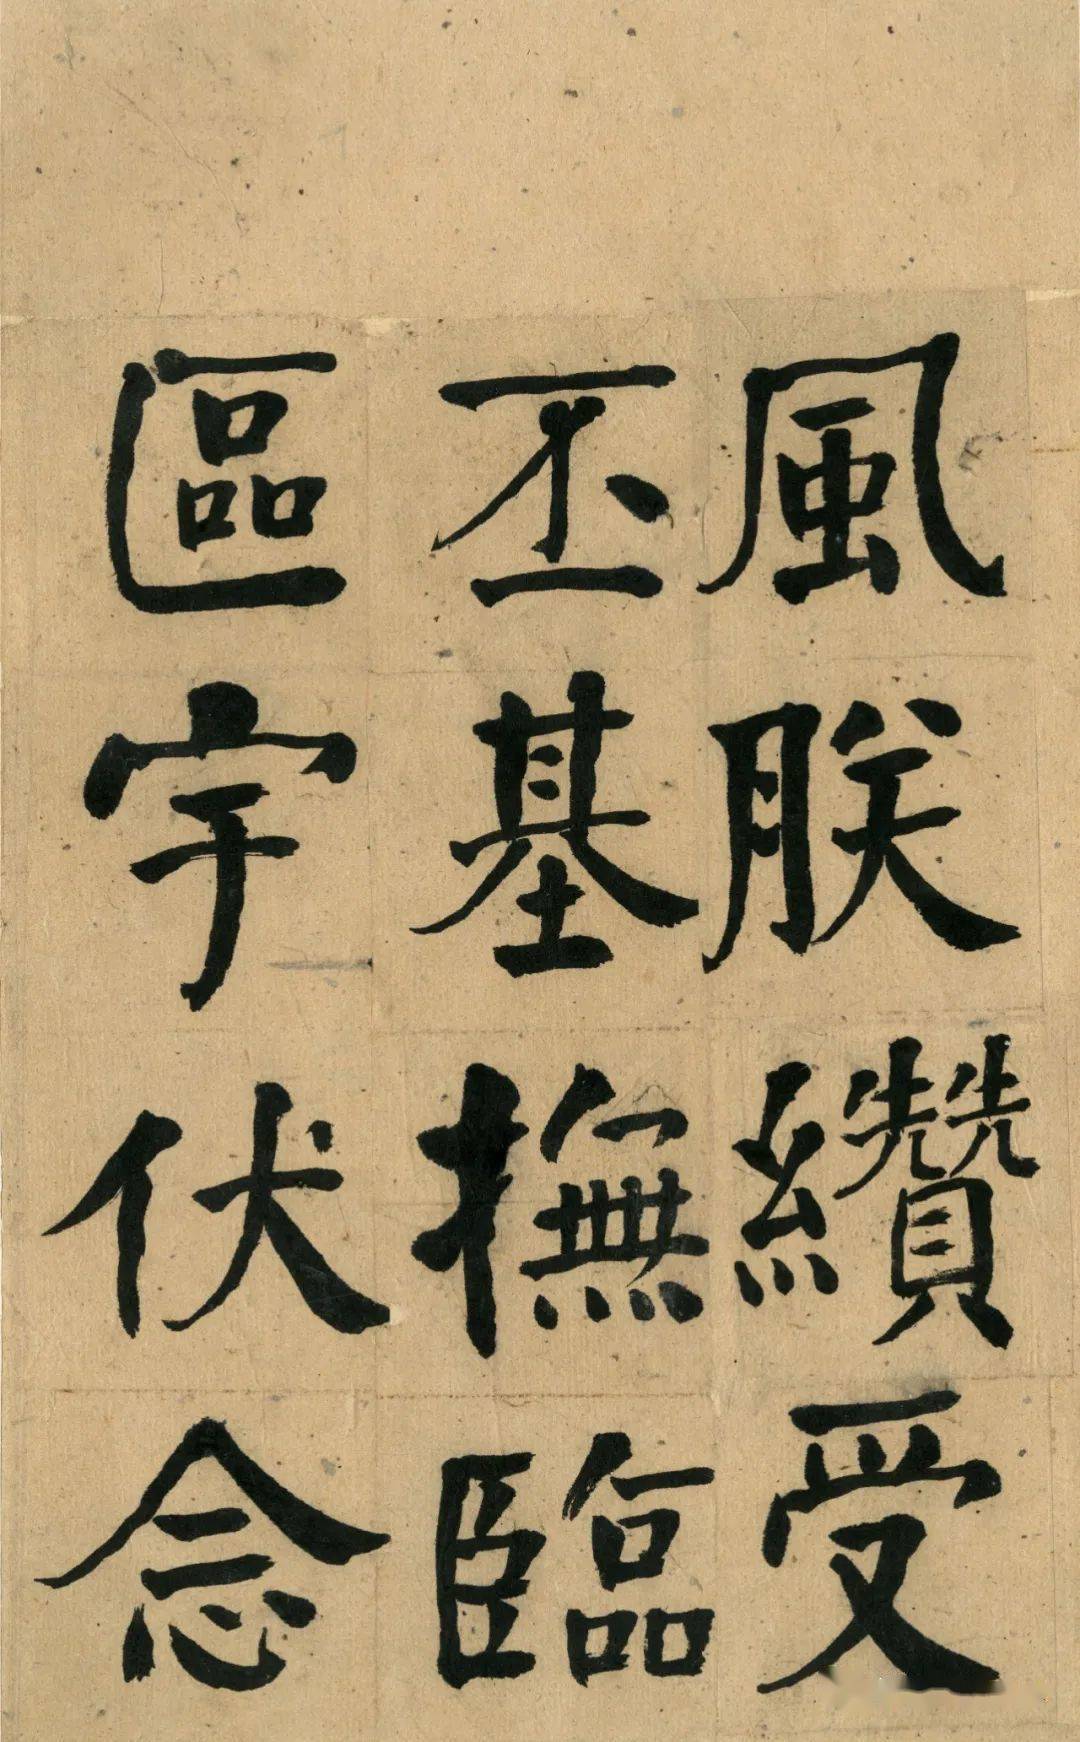 風朕纘受
丕基撫臨
區宇伏念